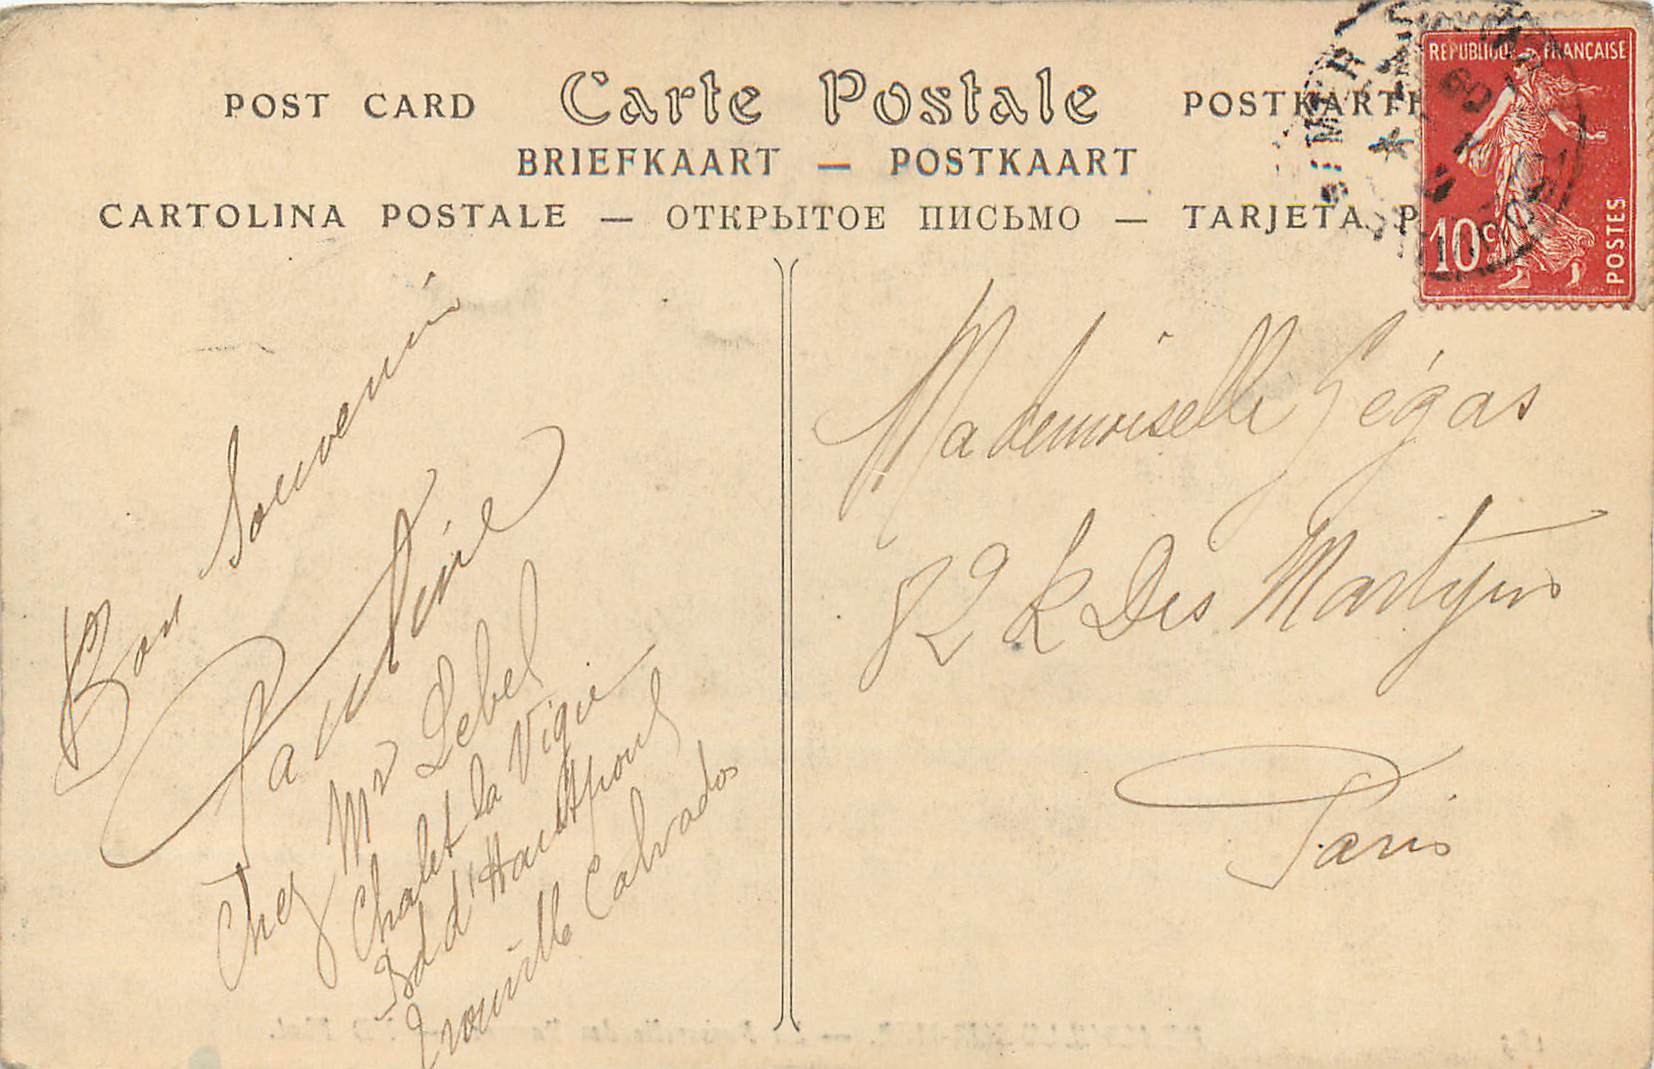 POST CARD Carte Postale POSTKARTE
BRIEFKAART — POSTKAART
CARTOLINA POSTALE — ОТКРЫТОЕ ПИСЬМО — TARJETA P
REPUBLIQUE FRANÇAISE
10c
POSTES
Bon Souvenir
Pauline
Chez Mr Lebel
Chalet la Vigie
Bd d'Hautpoul
Trouville Calvados
Mademoiselle Ségas
82 R Des Martyrs
Paris